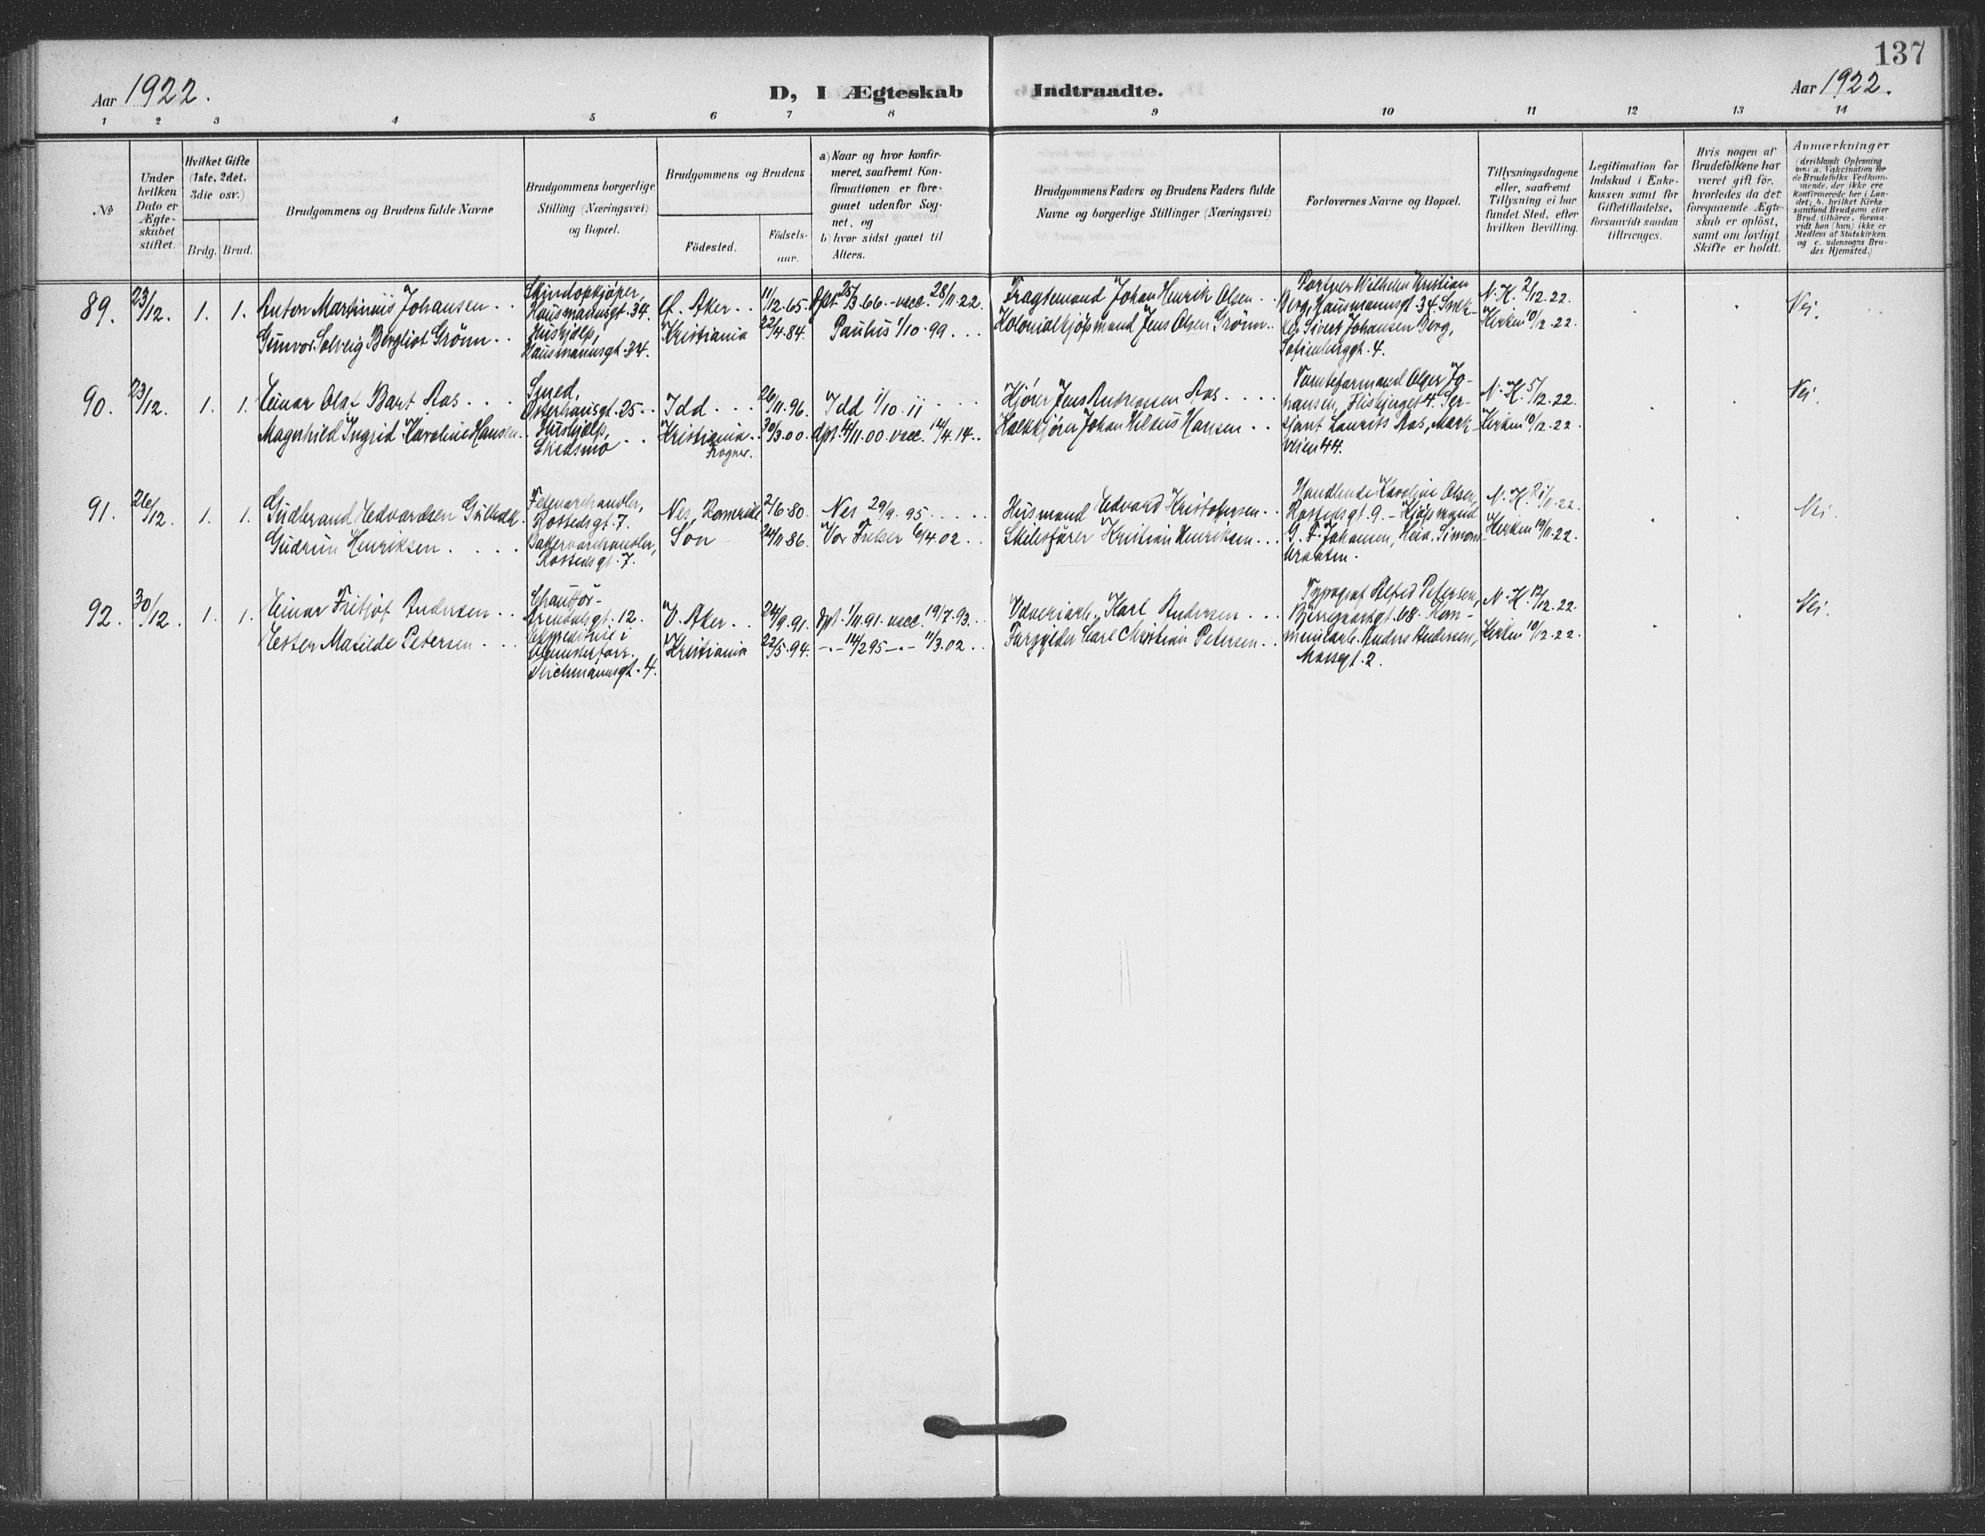 137
Aar 1922.
D, I Ægteskab Indtraadte.
Aar 1922.
1 2 3 4 5 6 7 8 9 10 11 12 13 14
№
Under hvilken Dato er Ægteskabet stiftet.
Hvilket Gifte (1ste, 2det, 3die osv.)
Brdg. Brud.
Brudgommens og Brudens fulde Navne
Brudgommens borgerlige Stilling (Næringsvei) og Bopæl.
Brudgommens og Brudens
Födested.
Födselsaar.
a) Naar og hvor konfirmeret, saafremt Konfirmationen er foregaaet udenfor Sognet, og
b) hvor sidst gaaet til Alters.
Brudgommens Faders og Brudens Faders fulde Navne og borgerlige Stillinger (Næringsvei)
Forlovernes Navne og Bopæl.
Tillysningsdagene eller, saafremt Tillysning ei har fundet Sted, efter hvilken Bevilling.
Legitimation for Indskud i Enkekassen samt for Giftetilladelse, forsaavidt saadan tiltrænges.
Hvis nogen af Brudefolkene har været gift för, hvorledes da det foregaaende Ægteskab er oplöst, samt om lovligt Skifte er holdt.
Anmærkninger
(deriblandt Oplysning om: a. Vakcination for de Brudefolks Vedkommende, der ikke ere konfirmerede her i Landet; b. hvilket Kirkesamfund Brudgom eller Brud tilhörer, forsaavidt han (hun) ikke er Medlem af Statskirken, og c. udensogns Brudes Hjemsted.)
89. 23/12. 1. 1.
Anton Martinius Johansen
Gunvor Solveig Bergliot Grönn
Skindopkjöper,
Hausmannsgt. 34.
Hushjælp,
Hausmannsgt. 34.
Ø. Aker 11/12.65.
Kristiania 22/4.84.
dpt 25/3.66. vacc. 28/11.22
Paulus 1/10.99
Fragtemand Johan Henrik Olsen
Kolonialkjöpmand Jens Olsen Grönn
Portner Wilhelm Kristian
Berg, Hausmannsgt. 34. Snek-
ker Sivert Johansen Berg,
Sofienberggt. 4.
N. K. 2/12.22.
Kirken 10/12.22.
Nei.
90. 23/12. 1. 1.
Einar Olaf Bart Aas
Magnhild Ingrid Karoline Hansen
Smed,
Osterhausgt. 25
Hushjælp,
Skedsmo
Idd 26/11.96.
Kristiania 30/3.00.
Fragner.
Idd 1/10.11
dpt 4/11.00 vacc. 14/4.14
Kjörer Jens Andreasen Aas
Kalkkjörer Johan Hilius Hansen
Tomteformand Olger Jo-
hansen, Flisberget 4. Ser-
sjant Laurits Aas, Mark-
veien 44.
N. K. 5/12.22
Kirken 10/12.22.
Nei
91. 26/12. 1. 1.
Gudbrand Edvardsen Gullbæk
Gudrun Henriksen
Fetevarehandler,
Rostedsgt. 7.
Bakervarehandler,
Rostedsgt. 7.
Nes, Romerike 2/6.80.
Son 24/11.86.
Nes 29/9.95
Vor Frelser 6/4.02
Husmand Edvard Kristofersen
Skibsförer Kristian Henriksen
Handlende Karoline Olsen,
Rostedsgt. 9. Kjöpmand
G. F. Johansen, Heia, Simon-
braaten.
N. K. 21/11.22.
Kirken 19/11.22.
Nei
92. 30/12. 1. 1.
Einar Fritjof Andersen
Ester Matilde Petersen
Chaufför
12.
Ekspeditrice i
Teichmannsgt. 4.
V. Aker 24/9.91.
Kristiania 22/5.94.
dpt. 1/11.91. vacc. 19/7.93.
-"- 14/2.95 -"- 11/3.02
Karl Andersen
Farvgjöder Carl Christian Petersen
Typograf Alfred Petersen,
Bjerregaardsgt. 68. Kom-
munearb. Anders Andersen,
Mossegt. 2.
N. K. 12/12.22.
Kirken 10/12.22.
Nei.